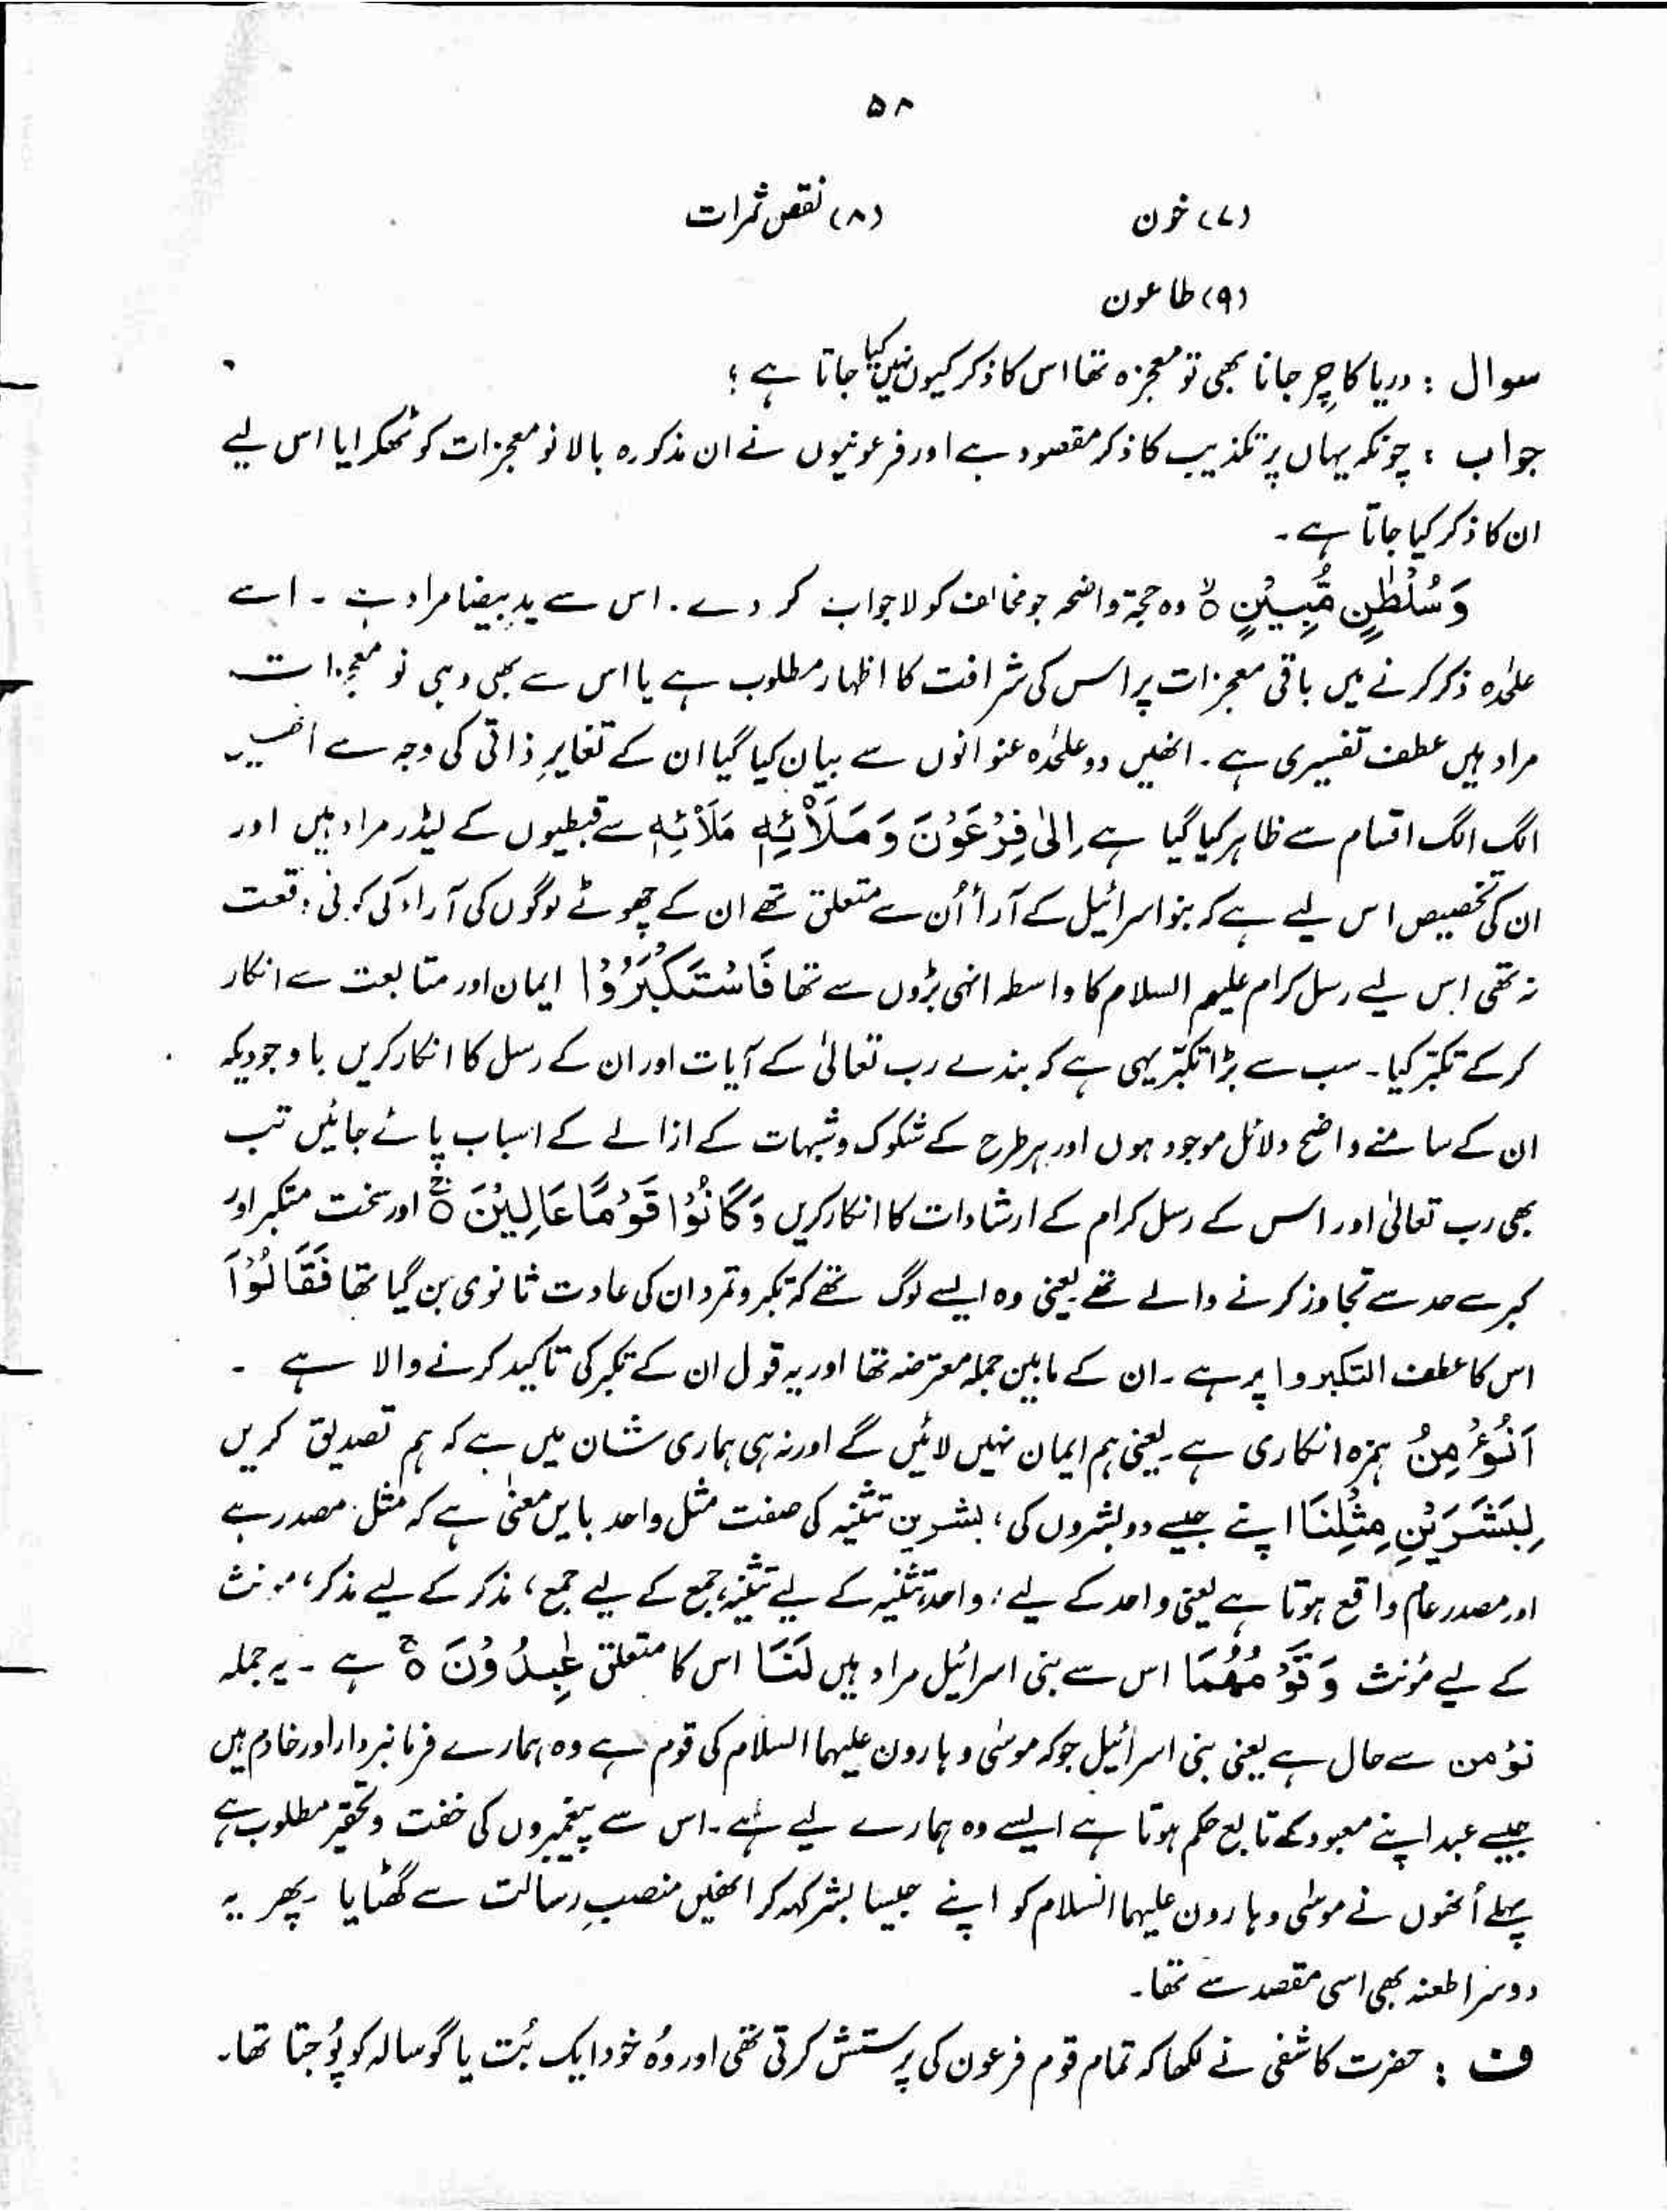 ۵۸
(۷) خون (۸) نقص ثمرات
(۹) طاعون
سوال : دریا کا چِر جانا بھی تو معجزہ تھا اس کا ذکر کیوں نہیں کیا جاتا ہے ؛
جواب : چونکہ یہاں پر تکذیب کا ذکر مقصود ہے اور فرعونیوں نے ان مذکورہ بالا نو معجزات کو ٹھکرایا اس لیے
ان کا ذکر کیا جاتا ہے ۔
وَسُلْطٰنٍ مُّبِیْنٍ ۝ۙ وہ حجۃ واضحہ جو مخالف کو لاجواب کر دے ۔ اس سے یدِ بیضا مراد ہے ۔ اسے
علٰحدہ ذکر کرنے میں باقی معجزات پر اس کی شرافت کا اظہار مطلوب ہے یا اس سے بھی وہی نو معجزات
مراد ہیں عطف تفسیری ہے ۔ انھیں دو علٰحدہ عنوانوں سے بیان کیا گیا ان کے تغایرِ ذاتی کی وجہ سے انھیں
الگ الگ اقسام سے ظاہر کیا گیا ہے ۔ اِلٰی فِرْعَوْنَ وَمَلَا۟ئِہٖ مَلَا۟ئِہٖ سے قبطیوں کے لیڈر مراد ہیں اور
ان کی تخصیص اس لیے ہے کہ بنو اسرائیل کے آراأ اُن سے متعلق تھے ان کے چھوٹے لوگوں کی آراء کی کوئی وقعت
نہ تھی اس لیے رسل کرام علیہم السلام کا واسطہ انہی بڑوں سے تھا فَاسْتَکْبَرُوْا ایمان اور متابعت سے انکار
کر کے تکبّر کیا ۔ سب سے بڑا تکبّر یہی ہے کہ بندے رب تعالیٰ کے آیات اور ان کے رسل کا انکار کریں باوجودیکہ
ان کے سامنے واضح دلائل موجود ہوں اور ہر طرح کے شکوک و شبہات کے ازالے کے اسباب پائے جائیں تب
بھی رب تعالیٰ اور اس کے رسل کرام کے ارشادات کا انکار کریں وَکَانُوْا قَوْمًا عَالِیْنَ ۝ۚ اور سخت متکبر اور
کبر سے حد سے تجاوز کرنے والے تھے یعنی وہ ایسے لوگ تھے کہ تکبر و تمرد ان کی عادت ثانوی بن گیا تھا فَقَالُوْٓا
اس کا عطف التکبروا پر ہے ۔ ان کے مابین جملہ معترضہ تھا اور یہ قول ان کے تکبر کی تاکید کرنے والا ہے ۔
اَنُؤْمِنُ ہمزہ انکاری ہے ۔ یعنی ہم ایمان نہیں لائیں گے اور نہ ہی ہماری شان میں ہے کہ ہم تصدیق کریں
لِبَشَرَیْنِ مِثْلِنَا اپنے جیسے دو بشروں کی ، بشرین تثنیہ کی صفت مثل واحد بایں معنیٰ ہے کہ مثل مصدر ہے
اور مصدر عام واقع ہوتا ہے یعنی واحد کے لیے واحد، تثنیہ کے لیے تثنیہ، جمع کے لیے جمع ، مذکر کے لیے مذکر ، مونث
کے لیے مؤنث وَقَوْمُھُمَا اس سے بنی اسرائیل مراد ہیں لَنَا اس کا متعلق عٰبِدُوْنَ ۝ۚ ہے ۔ یہ جملہ
نؤمن سے حال ہے یعنی بنی اسرائیل جو کہ موسٰی و ہارون علیہما السلام کی قوم ہے وہ ہمارے فرمانبردار اور خادم ہیں
جیسے عبد اپنے معبود کے تابع حکم ہوتا ہے ایسے وہ ہمارے لیے ہے ۔ اس سے پیغمبروں کی خفت و تحقیر مطلوب ہے
پہلے اُنھوں نے موسٰی و ہارون علیہما السلام کو اپنے جیسا بشر کہہ کر انھیں منصبِ رسالت سے گھٹایا ۔ پھر یہ
دوسرا طعنہ بھی اسی مقصد سے تھا ۔
ف : حضرت کاشفی نے لکھا کہ تمام قوم فرعون کی پرستش کرتی تھی اور وُہ خود ایک بُت یا گوسالہ کو پُوجتا تھا ۔